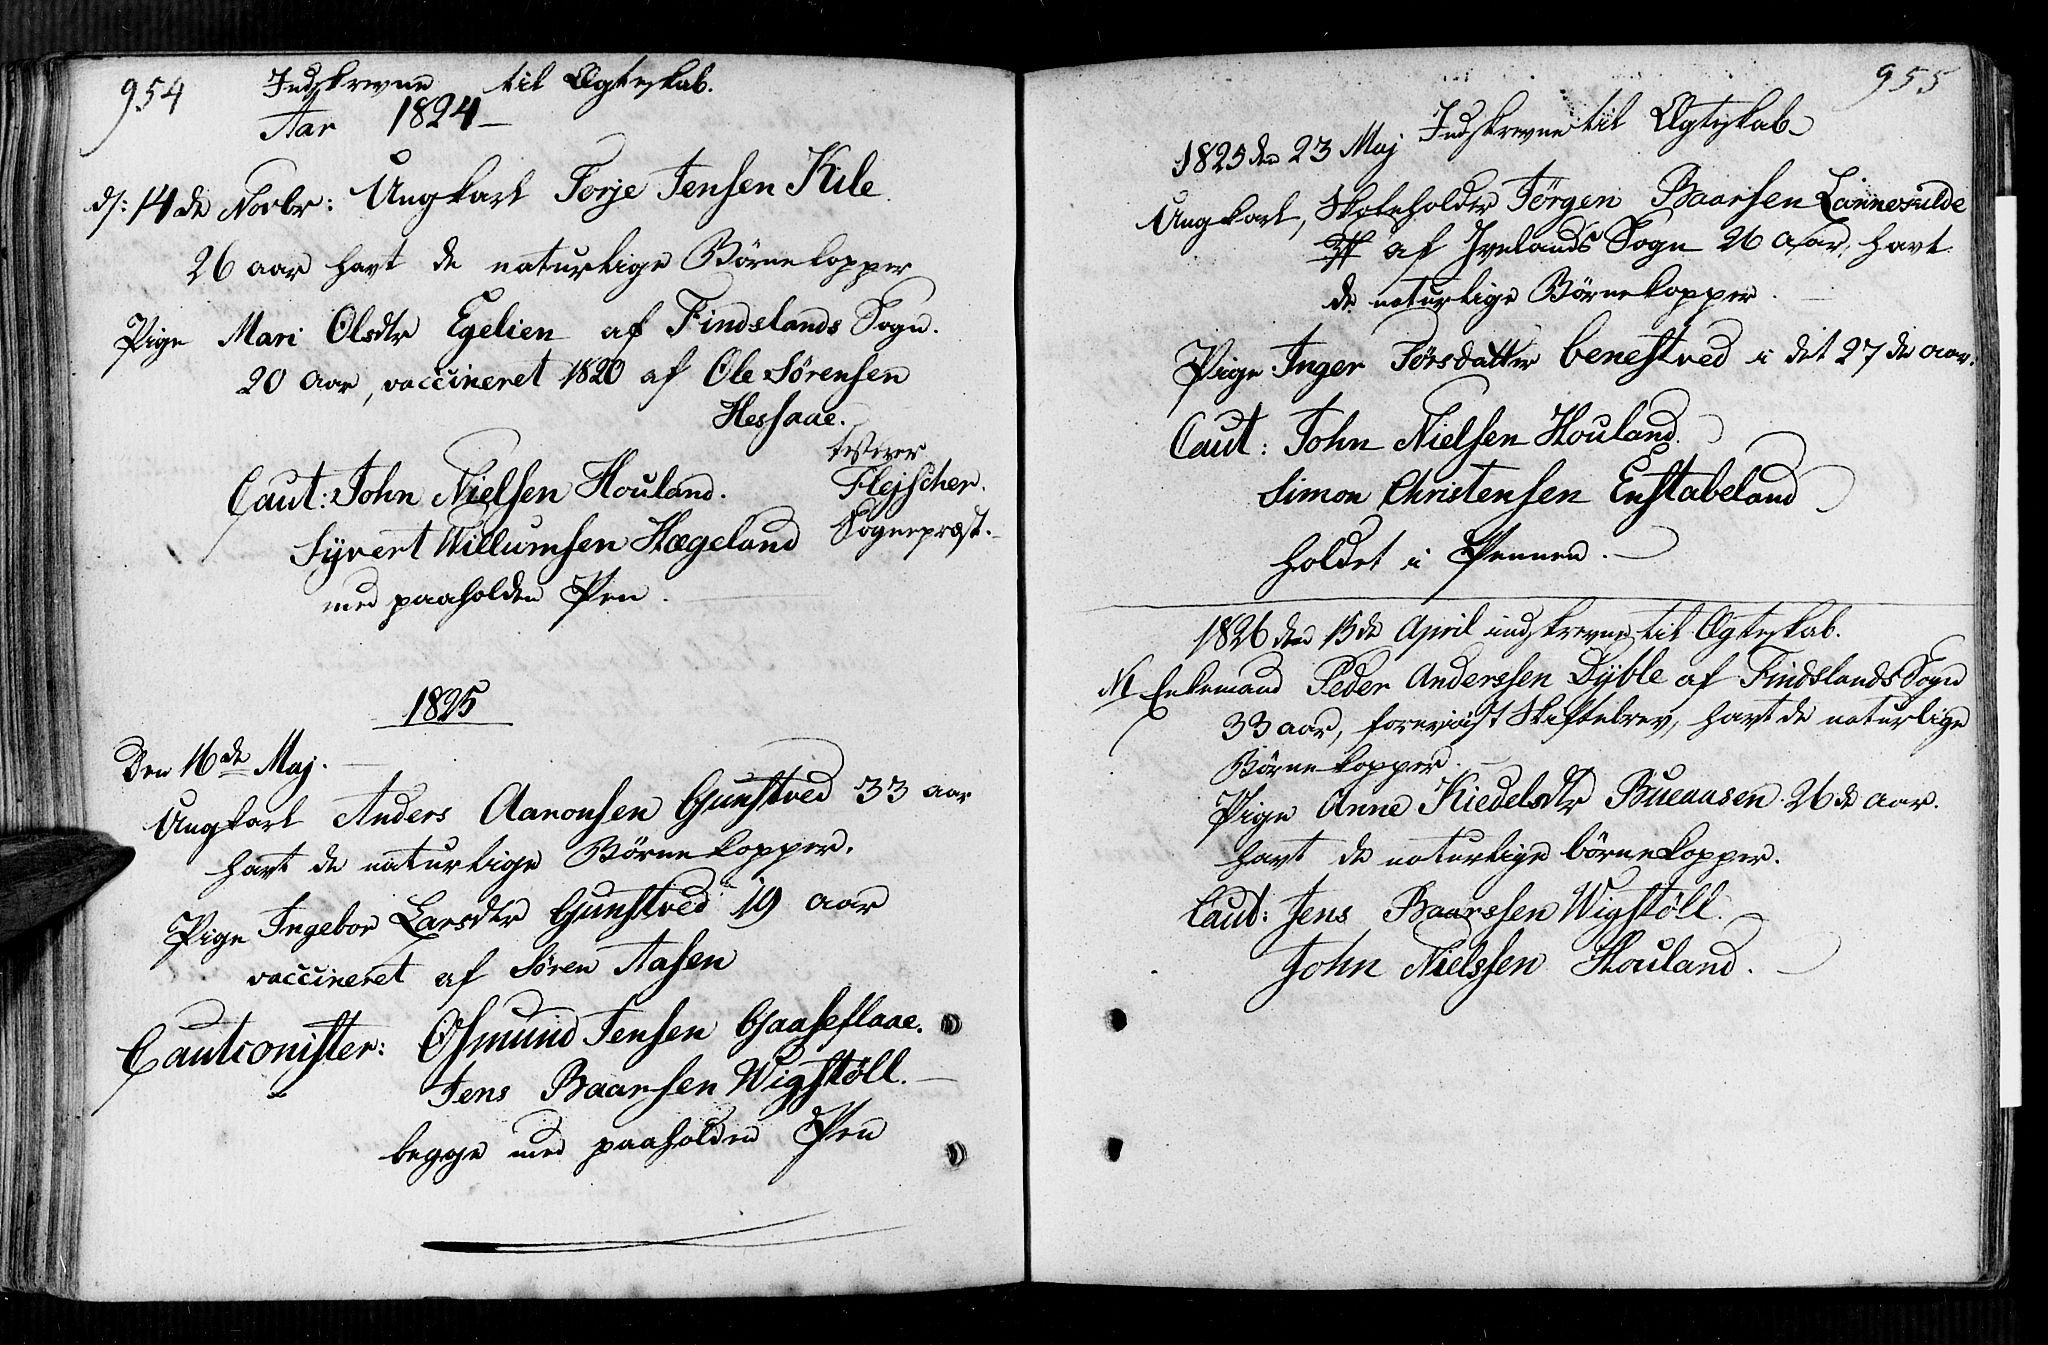 954
Indskrevne til Ægteskab.
Aar 1824
d: 14de Novbr: Ungkarl Torje Jensen Kile
26 aar havt de naturlige Börnekopper
Pige Mari Olsdtr Egelien af Findslands Sogn.
20 aar, vaccineret 1820 af Ole Sörensen
Hessaae.
testerer
Flejscher.
Sognepræst.
Caut: John Nielsen Houland.
Syvert Willumsen Hægeland
med paaholden Pen.
1825
Den 16de Maj.
Ungkarl Anders Aaronsen Gunstved 33 aar
havt de naturlige Börnekopper.
Pige Ingebor Larsdtr Gunstved 19 aar
vaccineret af Sören Aasen
Cautionister: Osmund Jensen Gaaseflaae.
Jens Baarsen Wigstöll.
begge med paaholden Pen
955
Indskrevne til Ægteskab
1825 den 23 Maj
Ungkarl, Skoleholder Jörgen Baarsen
af Ivelands Sogn 26 aar, havt
de naturlige Börnekopper.
Pige Inger Törsdatter Benestved i det 27de aar.
Caut: John Nielsen Houland.
Simon Christensen Enstabeland
holdet i Pennen.
1826 den 15de April indskrevne til Ægteskab.
Enkemand Peder Anderssen Dyble af Findslands Sogn
33 aar, foreviist Skiftebrev, havt de naturlige
Börnekopper.
Pige Anne Kiedelsdtr Bueaasen 26de aar.
havt de naturlige börnekopper.
Caut: Jens Baarssen Wigstöll.
John Nielssen Houland.